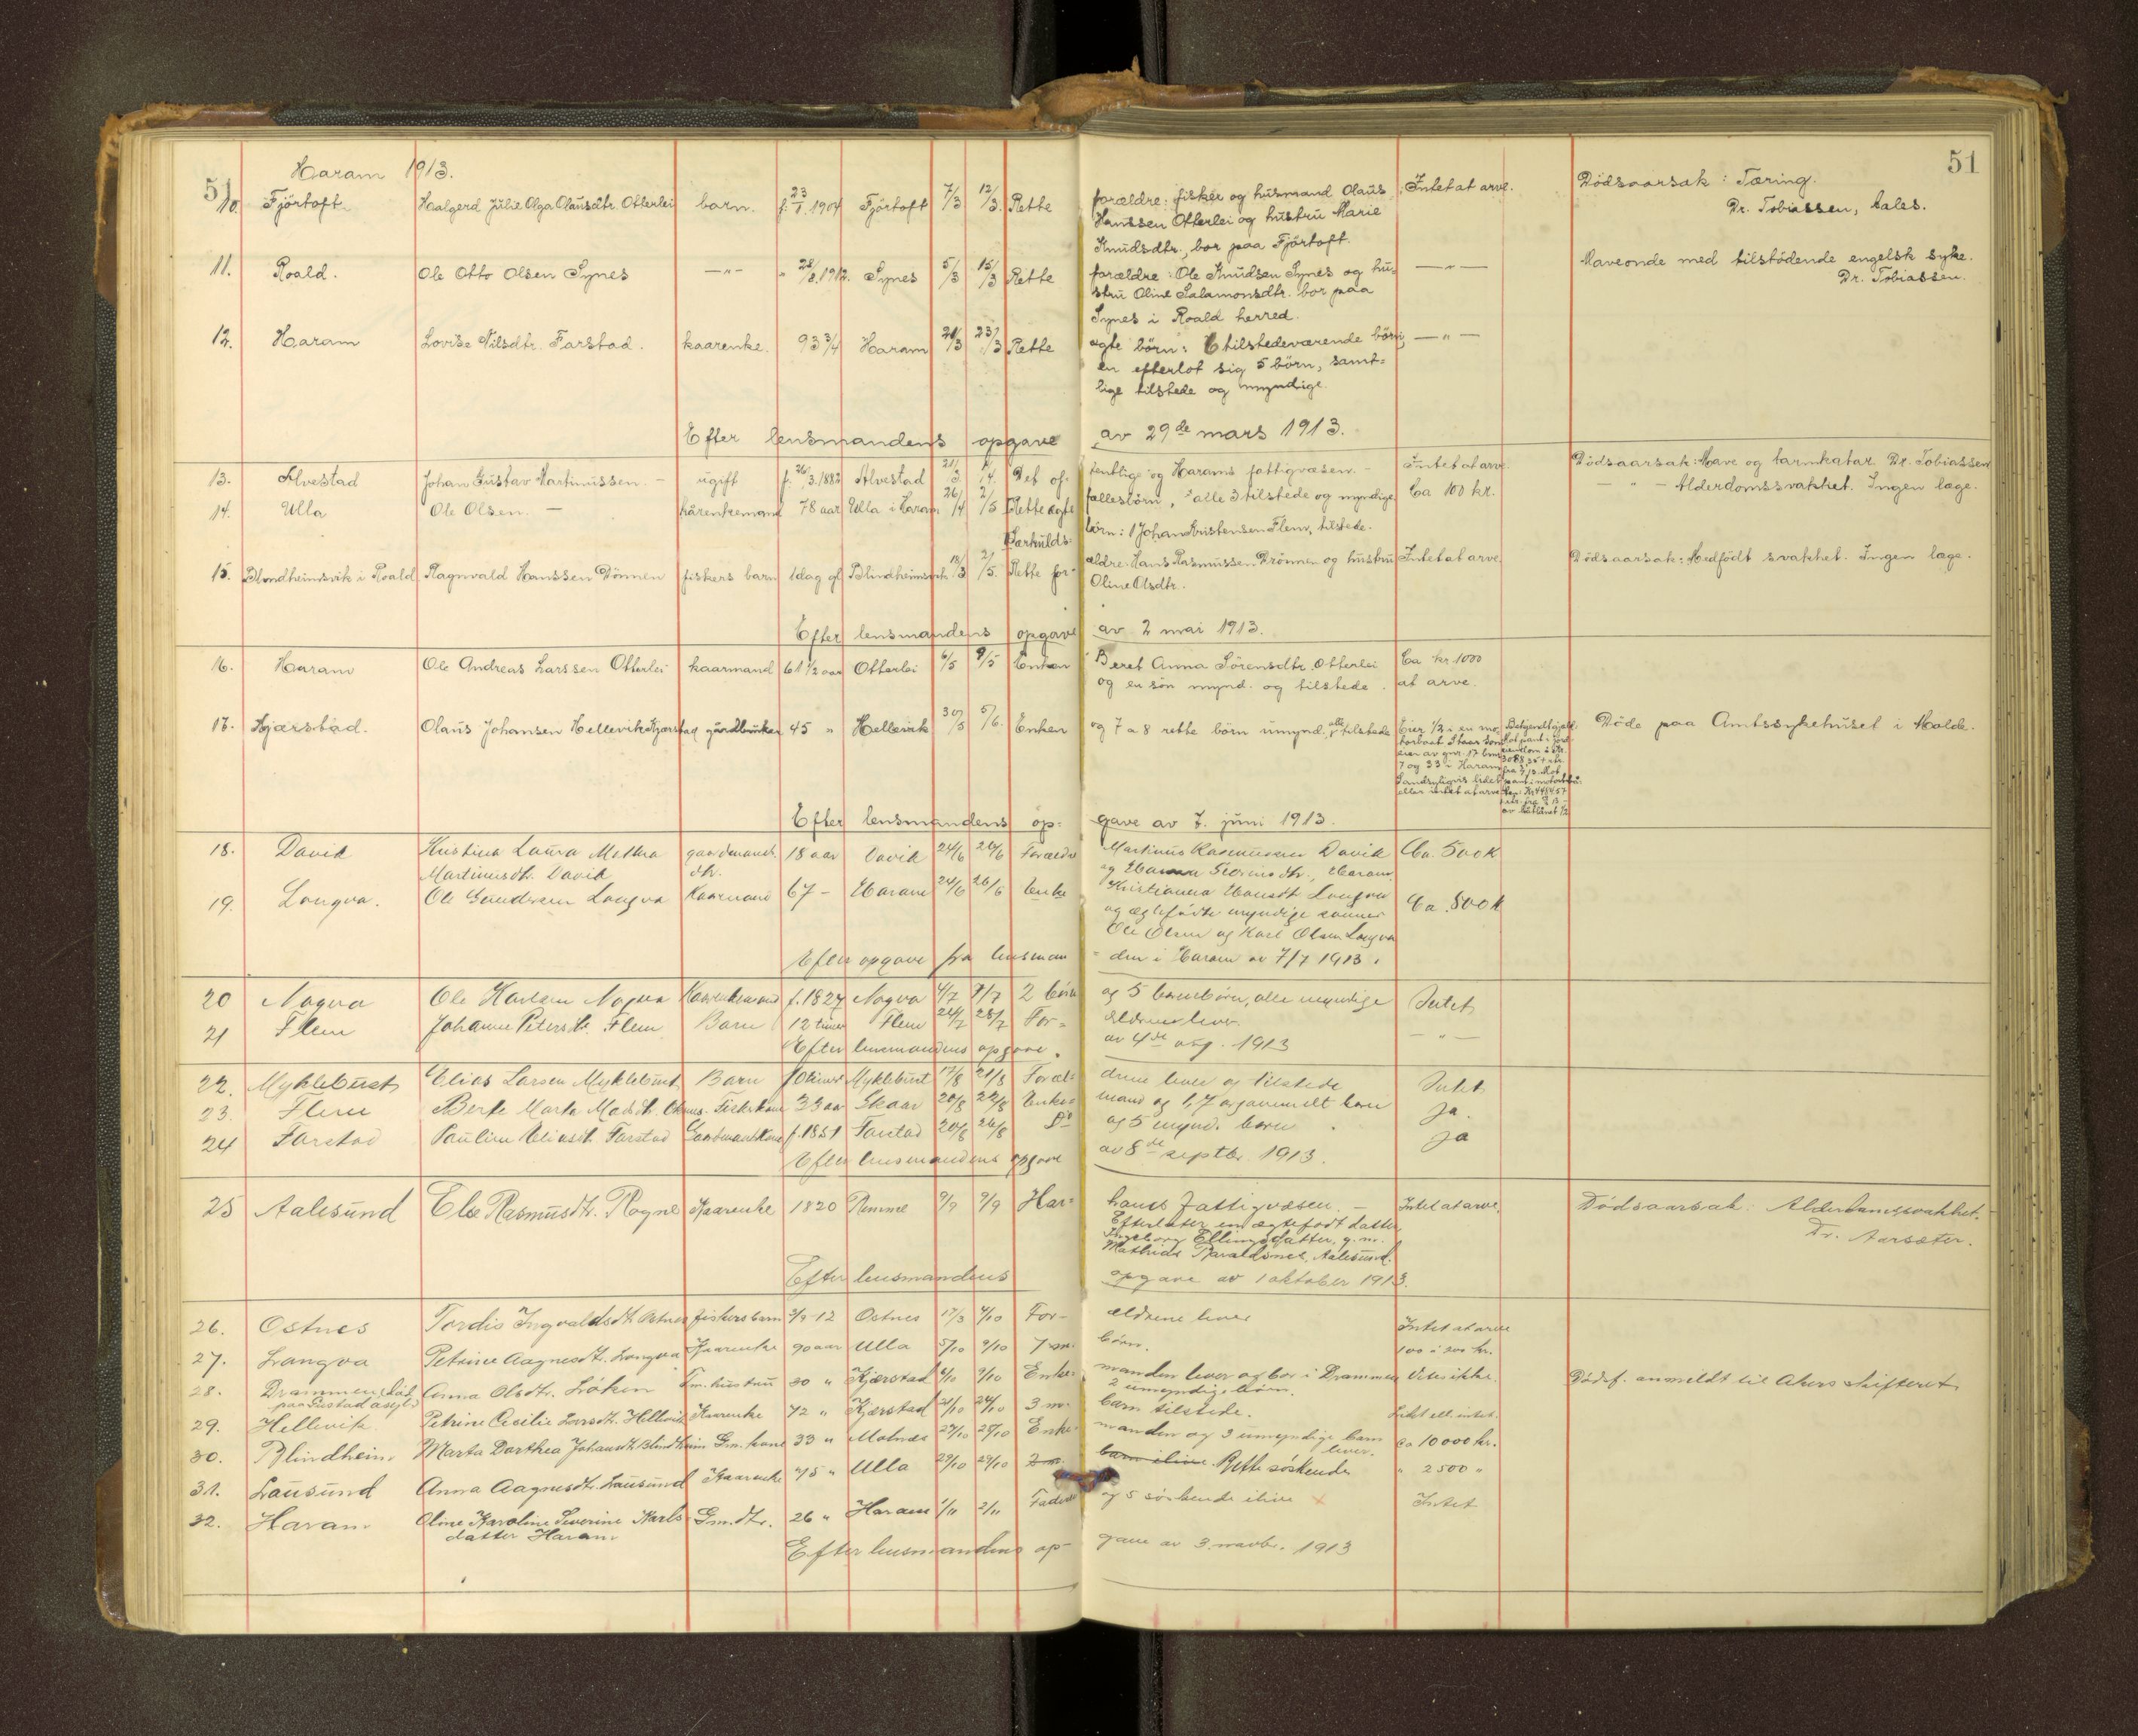 Haram 1913.
51 51
10. Fjörtoft. Halgerd Julie Olga Olausdtr. Otterlei barn. f. 23/1. 1904 Fjörtoft 7/3 12/3. Rette forældre: fisker og husmand Olaus Intet at arve. Dödsaarsak: Tæring.
Hanssen Otterlei og hustru Marie Dr. Tobiassen, Aales.
Knudsdtr., bor paa Fjörtoft.
11. Roald. Ole Otto Olsen Synes —"— " 28/8. 1912. Synes 5/3 15/3 Rette forældre: Ole Knudsen Synes og hu= —"— Maveonde med tilstödende engelsk syke.
stru Oline Salamonsdtr. bor paa Dr. Tobiassen.
Synes i Roald herred.
12. Haram Lovise Nilsdtr. Farstad. kaarenke. 93 3/4 Haram 21/3 23/3 Rette ægte börn: 6 tilstedeværende börn, —"—
en efterlot sig 5 börn, samt=
lige tilstede og myndige.
Efter lensmandens opgave av 29de mars 1913.
13. Alvestad Johan Gustav Martinussen. — ugift f. 26/3. 1882 Alvestad 21/3 1/4. Det of= fentlige og Harams fattigvæsen. — Intet at arve. Dödsaarsak: Mave og tarmkatar. Dr. Tobiassen
14. Ulla Ole Olsen. — kårenkemand 78 aar Ulla i Haram 26/4 2/5 Rette ægte fællesbörn, alle 3 tilstede og myndige. Ca 100 kr. — " — Alderdomssvakhet. Ingen læge.
Særkulds= börn: 1 Johan Kristensen Flem, tilstede.
15. Blindheimsvik i Roald Ragnvald Hanssen Dönnen fiskers barn 1 dag gl. Blindheimsvik 18/3 2/5. Rette for= ældre: Hans Rasmussen Drönnen og hustru Intet at arve. Dödsaarsak: Medfödt svakhet. Ingen læge.
Oline Olsdtr.
Efter lensmandens opgave av 2 mai 1913.
16. Haram Ole Andreas Larssen Otterlei kaarmand 61 1/2 aar Otterlei 6/5 9/5 Enken Beret Anna Sörensdtr. Otterlei Ca kr 1000
og en sön mynd. og tilstede. at arve.
17. Kjærstad. Olaus Johansen Hellevik Kjærstad gårdbruker 45 " Hellevik 30/5 5/6. Enken og 7 a 8 rette börn umynd., alle tilstede Eier 1/2 i en mo- Döde paa Amtssykehuset i Molde.
7 og 33 i Haram
Sandsynligvis lidet
eller intet at arve
Efter lensmandens op= gave av 7. juni 1913.
18. Davik Kristine Laura Mathea gaardmands 18 aar Davik 24/6 26/6 Foreldre Martinus Rasmussen Davik Ca. 500 k
Martinusdtr. Davik dtr.
19. Longva. Ole Gundersen Longva Kaarmand 67 — Haram 24/6 26/6 Enke Kristianna Hansdt Longva Ca. 800 k
og ægtefödte myndige sönner
Ole Olsen og Karl Olsen Longva
Efter opgave fra lensman- den i Haram av 7/7 1913.
20 Nogva Ole Karlsen Nogva Kaarenkemand f. 1827 Nogva 4/7 7/7 2 börn og 5 barnebörn, alle myndige Intet
21 Flem Johanne Petersdt. Flem Barn 12 timer Flem 24/7 28/7 For= ældrene lever. —"—
Efter lensmandens opgave. av 4de aug. 1913
22. Myklebust Elias Larsen Myklebust Barn Myklebust 17/8 21/8 Foræl= drene lever og tilstede Intet
23. Flem Berte Marte Madsdt. Fiskerkone 33 aar Skaar 20/8 22/8 Enke= mand og 1, 7 aar gammelt barn Ja.
24 Farstad Pauline Eliasdt. Farstad Gaardmandskone f. 1851 Farstad 20/8 26/8 Do og 5 mynd. börn. Ja
Efter lensmandens opgave av 8de septbr. 1913.
25 Aalesund Else Rasmusdtr. Rogne Kaarenke 1820 Remme 9/9 Har= hams Fattigvæsen. — Intet at arve. Dödsaarsak: Alderdomssvakhet.
Efterlater en ægtefödt datter Dr. Aarsæter.
Ingeborg Ellingsdatter, g. m.
Mathias Aalesund.
Efter lensmandens opgave av 1 oktober 1913.
26. Ostnes Tordis Ingvaldsdt. Ostnes fiskers barn 3/9-12 Ostnes 17/3 4/10 For- ældrene lever Intet at arve
27. Longva Petrine Aagesdt. Longva Kaarenke 90 aar Ulla 5/10 9/10 7 m. börn. 100 à 200 kr.
28. Drammen Anna Olsdtr. Löken Gm. hustru 30 " Kjærstad 6/10 9/10 Enke= manden lever og bor i Drammen Vites ikke. Dödsf. anmeldt til Akers skifteret
2 umyndige börn.
29. Hellevik Petrine Cecilie Larsdt. Hellevik Kaarenke 72 " Kjærstad 21/10 24/10 3 m. barn tilstede. Litet ell. intet.
30. Blindheim Marta Dorthea Johansdt. Blindheim Gm. kone 33 " Molnes 27/10 29/10 Enke= manden og 3 umyndige barn ca 10000 kr.
lever.
31. Lausund Anna Aagesdt. Lausund Kaarenke 75 " Ulla 29/10 29/10 barn ilive Rette söskende " 2500 "
32. Haram Oline Karoline Severine Karls- Gm. dtr. 26 " Haram 1/11 2/11 Faderen og 5 söskende ilive × Intet
datter Haram
Efter lensmandens op- gave av 3. novbr. 1913